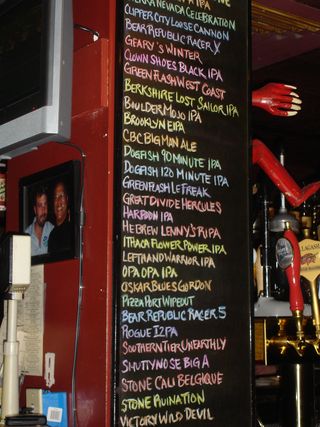 SIERRA NEVADA CELEBRATION
CLIPPER CITY LOOSE CANNON
BEAR REPUBLIC RACER X
GEARY'S WINTER
CLOWN SHOES BLACK IPA
GREEN FLASH WEST COAST
BERKSHIRE LOST SAILOR IPA
BOULDER MOJO IPA
BROOKLYN EIPA
CBC BIG MAN ALE
DOGFISH 90 MINUTE IPA
DOGFISH 120 MINUTE IPA
GREENFLASH LE FREAK
GREAT DIVIDE HERCULES
HARPOON IPA
HEBREW LENNY'S RIPA
ITHACA FLOWER POWER IPA
LEFTHAND WARRIOR IPA
OPA OPA IPA
OSKAR BLUES GORDON
PIZZA PORT WIPEOUT
BEAR REPUBLIC RACER 5
ROGUE I2PA
SOUTHERN TIER UNEARTHLY
SHUTTYNOSE BIG A
STONE CALI BELGIQUE
STONE RUINATION
VICTORY WILD DEVIL